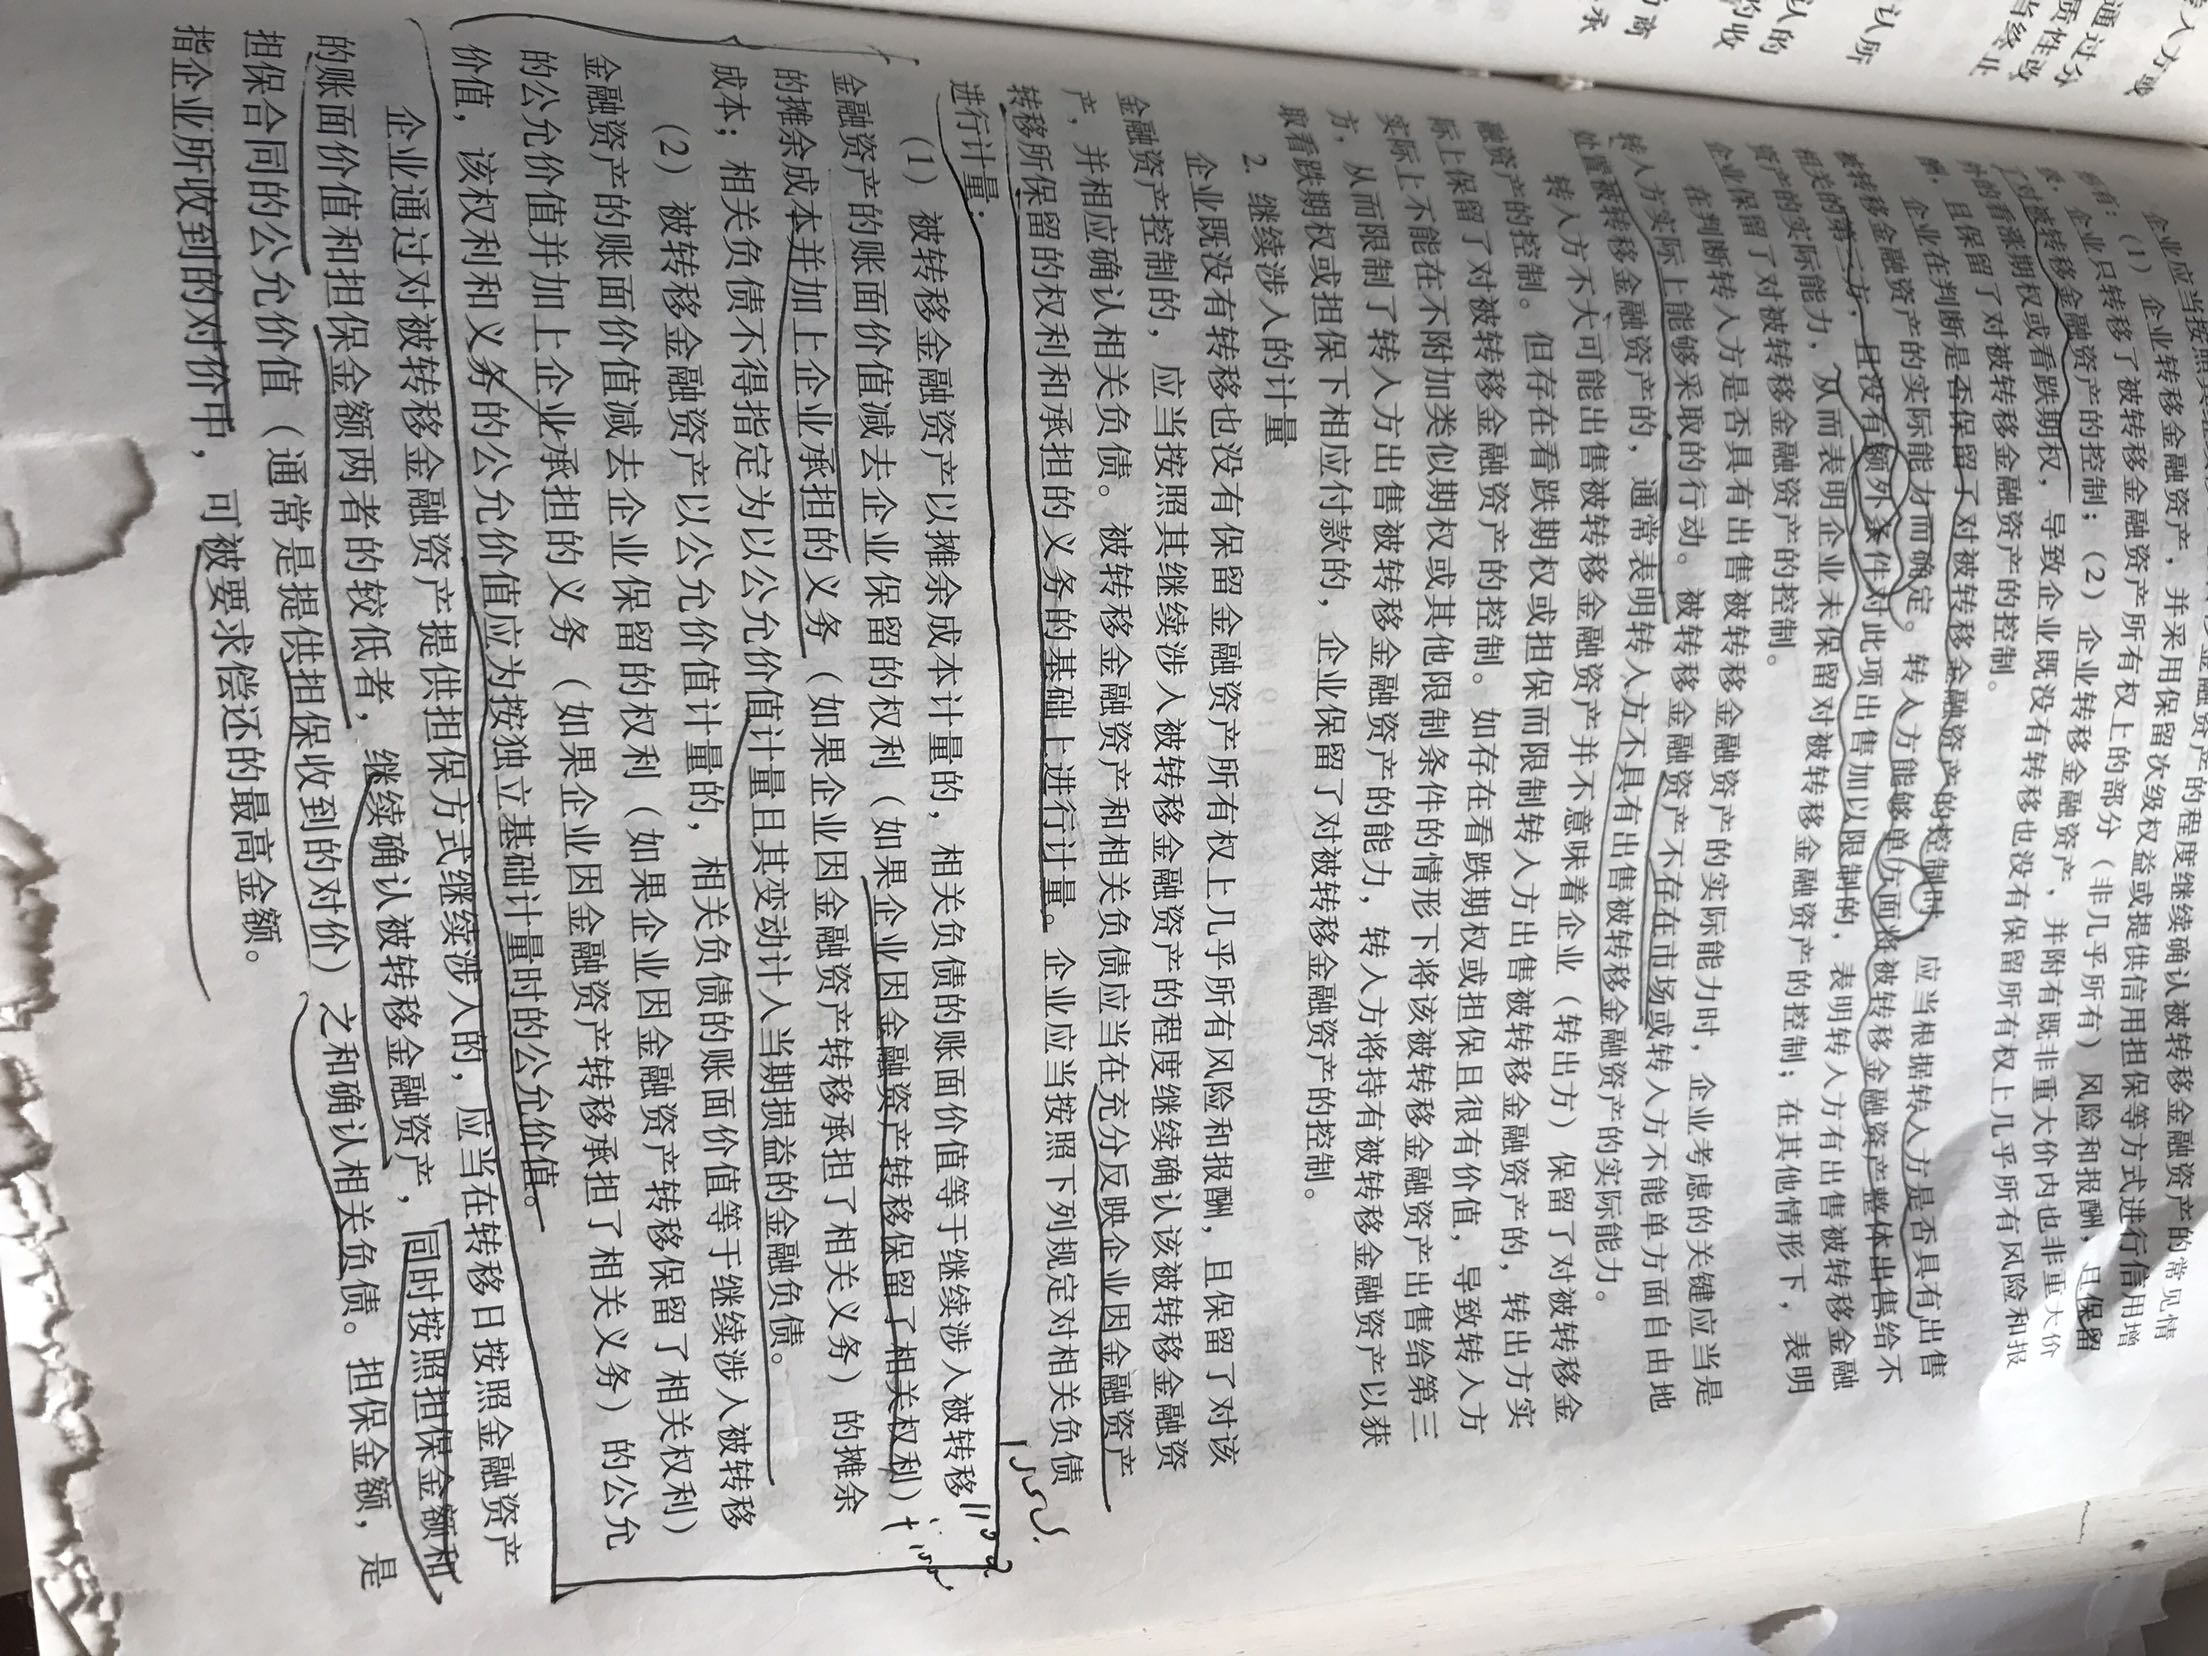 企业应当按照其继续涉入被转移金融资产的程度继续确认被转移金融资产的常见情
有：（1）企业转移金融资产，并采用保留次级权益或提供信用担保等方式进行信用增
企业只转移了被转移金融资产所有权上的部分（非几乎所有）风险和报酬，且保留
了对被转移金融资产的控制；（2）企业转移金融资产，并附有既非重大价内也非重大价
外的看涨期权或看跌期权，导致企业既没有转移也没有保留所有权上几乎所有风险和报
酬，且保留了对被转移金融资产的控制。
企业在判断是否保留了对被转移金融资产的控制时，应当根据转入方是否具有出售
被转移金融资产的实际能力而确定。转入方能够单方面将被转移金融资产整体出售给不
相关的第三方，且没有额外条件对此项出售加以限制的，表明转入方有出售被转移金融
资产的实际能力，从而表明企业未保留对被转移金融资产的控制；在其他情形下，表明
企业保留了对被转移金融资产的控制。
在判断转入方是否具有出售被转移金融资产的实际能力时，企业考虑的关键应当是
转入方实际上能够采取的行动。被转移金融资产不存在市场或转入方不能单方面自由地
处置被转移金融资产的，通常表明转入方不具有出售被转移金融资产的实际能力。
转入方不大可能出售被转移金融资产并不意味着企业（转出方）保留了对被转移金
融资产的控制。但存在看跌期权或担保而限制转入方出售被转移金融资产的，转出方实
际上保留了对被转移金融资产的控制。如存在看跌期权或担保且很有价值，导致转入方
实际上不能在不附加类似期权或其他限制条件的情形下将该被转移金融资产出售给第三
方，从而限制了转入方出售被转移金融资产的能力，转入方将持有被转移金融资产以获
取看跌期权或担保下相应付款的，企业保留了对被转移金融资产的控制。
2. 继续涉入的计量
企业既没有转移也没有保留金融资产所有权上几乎所有风险和报酬，且保留了对该
金融资产控制的，应当按照其继续涉入被转移金融资产的程度继续确认该被转移金融资
产，并相应确认相关负债。被转移金融资产和相关负债应当在充分反映企业因金融资产
转移所保留的权利和承担的义务的基础上进行计量。企业应当按照下列规定对相关负债
进行计量：
（1）被转移金融资产以摊余成本计量的，相关负债的账面价值等于继续涉入被转移
金融资产的账面价值减去企业保留的权利（如果企业因金融资产转移保留了相关权利）
的摊余成本并加上企业承担的义务（如果企业因金融资产转移承担了相关义务）的摊余
成本；相关负债不得指定为以公允价值计量且其变动计入当期损益的金融负债。
（2）被转移金融资产以公允价值计量的，相关负债的账面价值等于继续涉入被转移
金融资产的账面价值减去企业保留的权利（如果企业因金融资产转移保留了相关权利）
的公允价值并加上企业承担的义务（如果企业因金融资产转移承担了相关义务）的公允
价值，该权利和义务的公允价值应为按独立基础计量时的公允价值。
企业通过对被转移金融资产提供担保方式继续涉入的，应当在转移日按照金融资产
的账面价值和担保金额两者的较低者，继续确认被转移金融资产，同时按照担保金额和
担保合同的公允价值（通常是提供担保收到的对价）之和确认相关负债。担保金额，是
指企业所收到的对价中，可被要求偿还的最高金额。